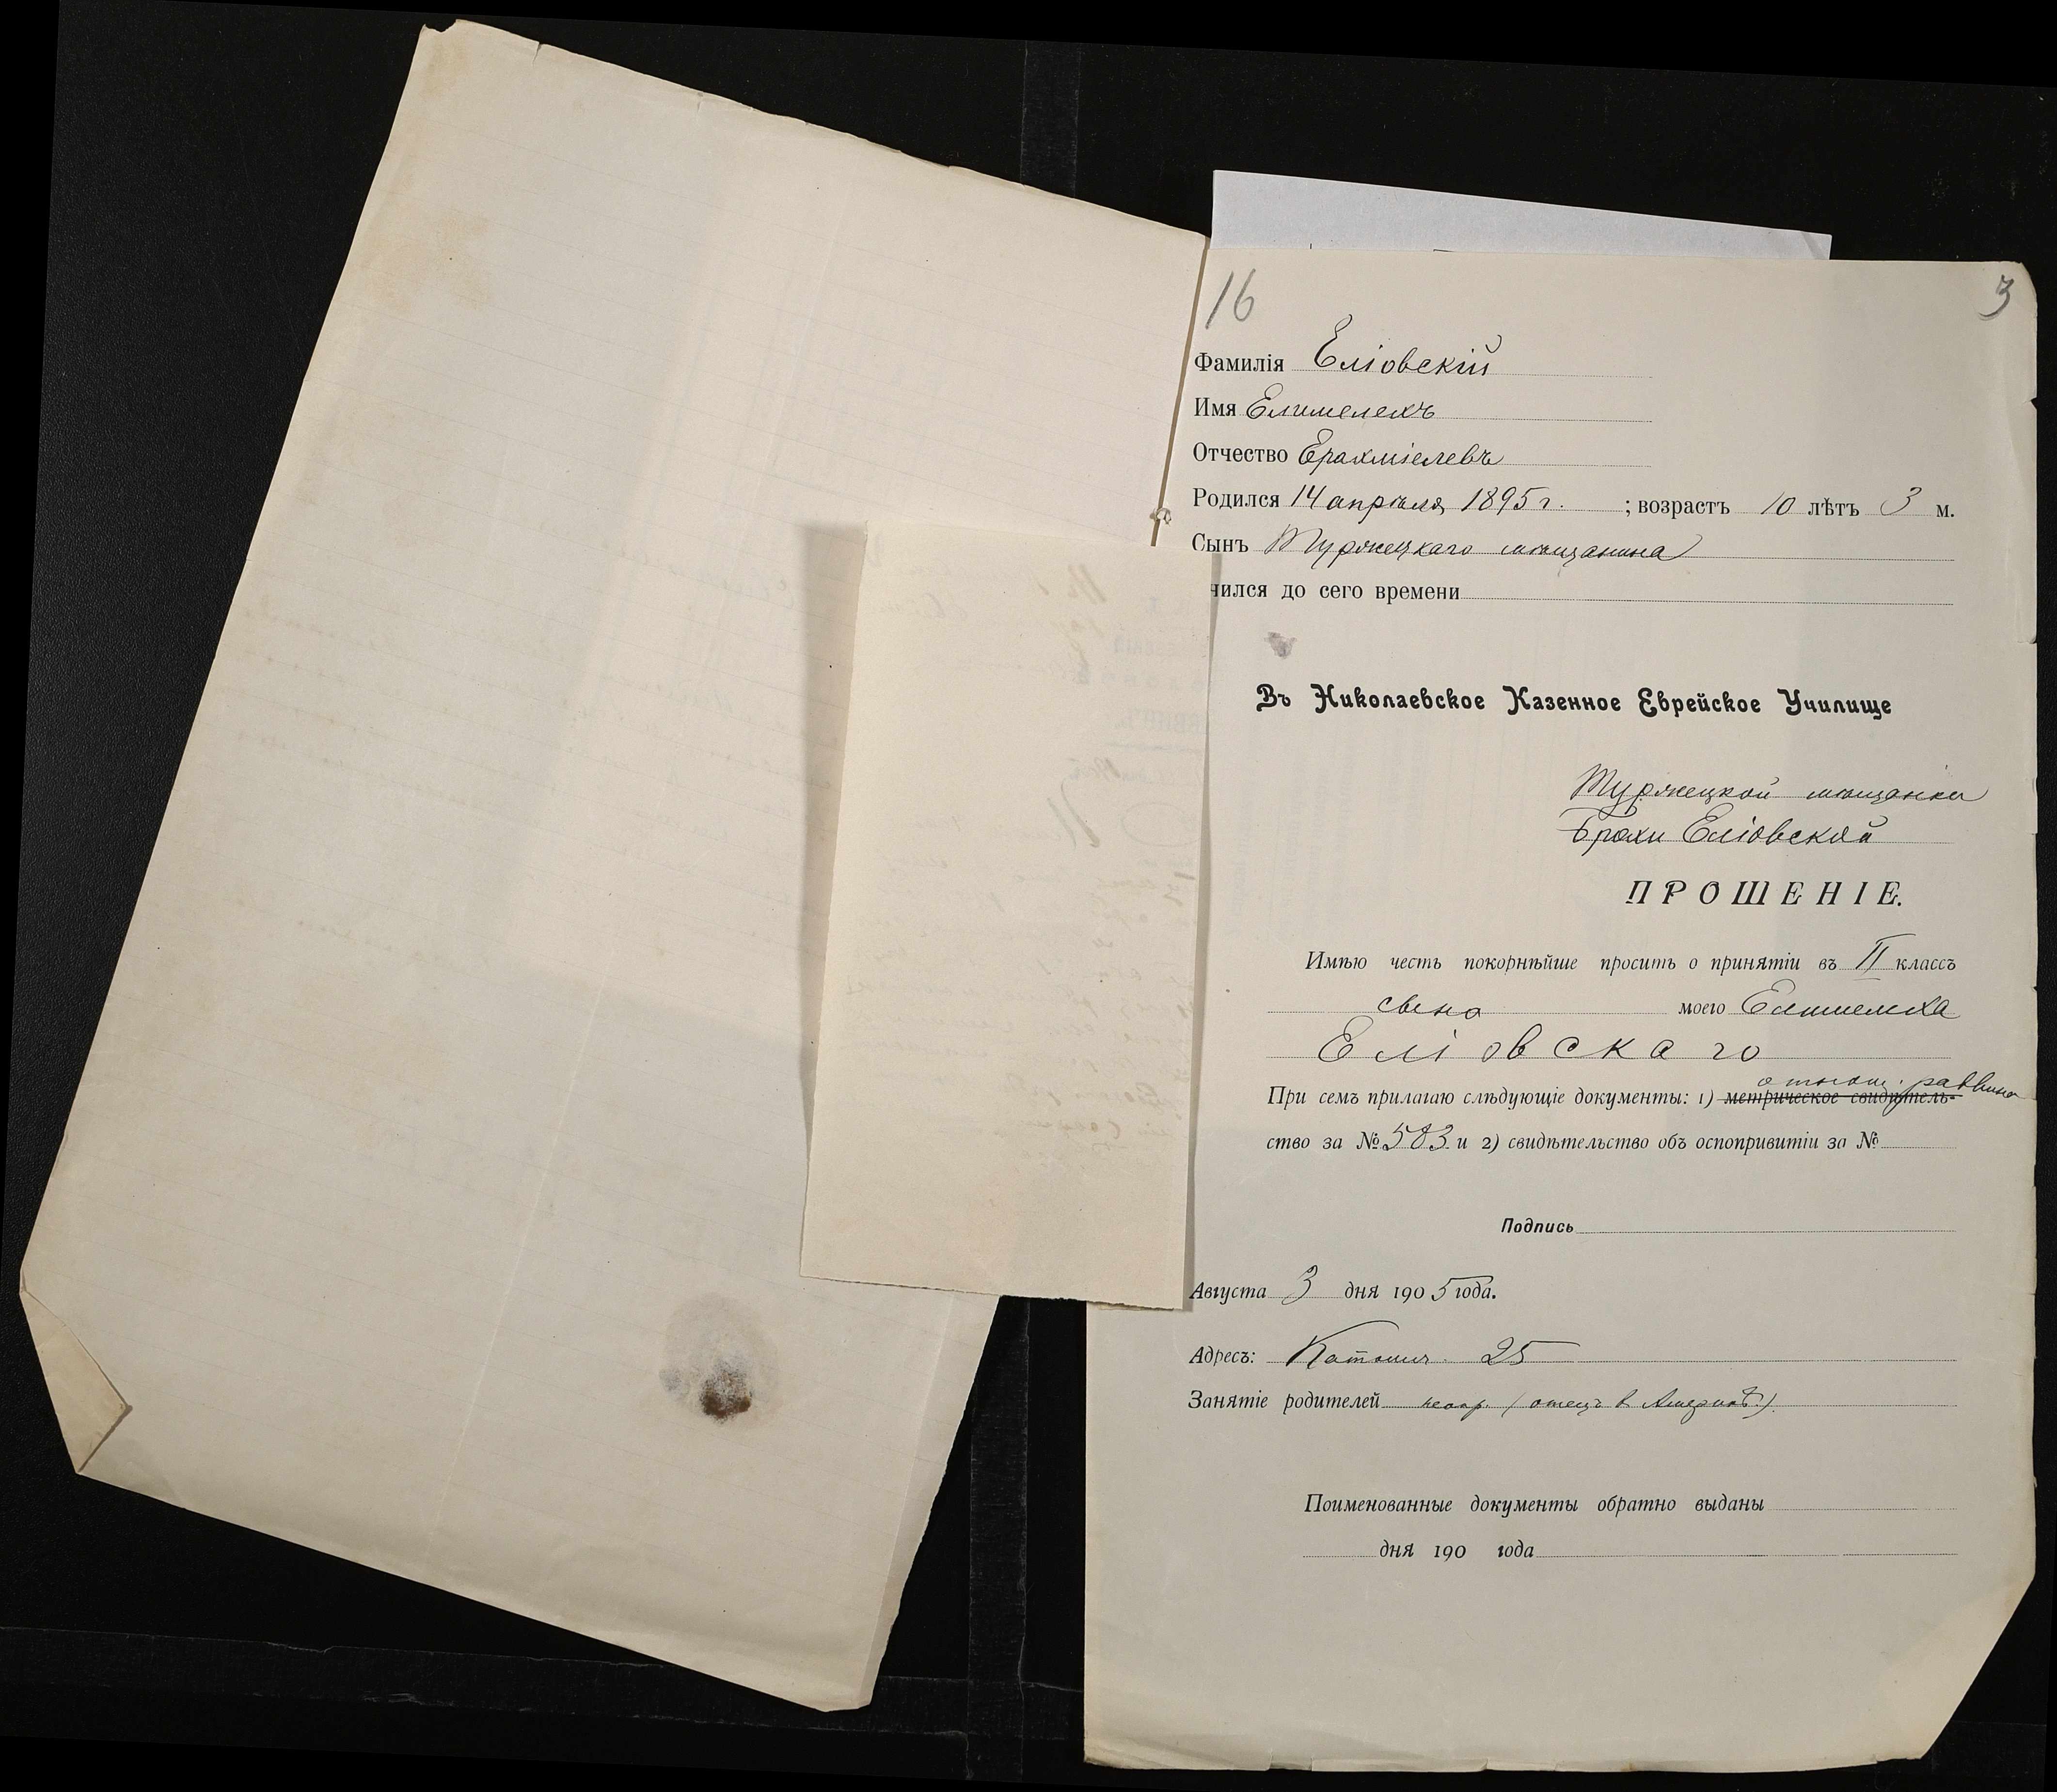 16
3
Фамилія Еліовскій
Имя Елимелехъ
Отчество Ерахміелевъ
Родился 14 апрѣля 1895 г. ; возрастъ 10 лѣтъ 3 м.
Сынъ Туржецкаго мѣщанина
чился до сего времени
Въ Николаевское Казенное Еврейское Училище
Туржецкой мѣщанки
Брохи Еліовской
ПРОШЕНІЕ.
Имѣю честь покорнѣйше просить о принятіи въ II классъ
сына моего Елимелеха
Еліовскаго
раввина
При семъ прилагаю слѣдующіе документы: 1) метрическое свидѣтель-
ство за № 583 и 2) свидѣтельство объ оспопривитіи за №
Подпись
Августа 3 дня 1905 года.
Адресъ: 25
Занятіе родителей (отецъ в Америкѣ)
Поименованные документы обратно выданы
дня 190 года